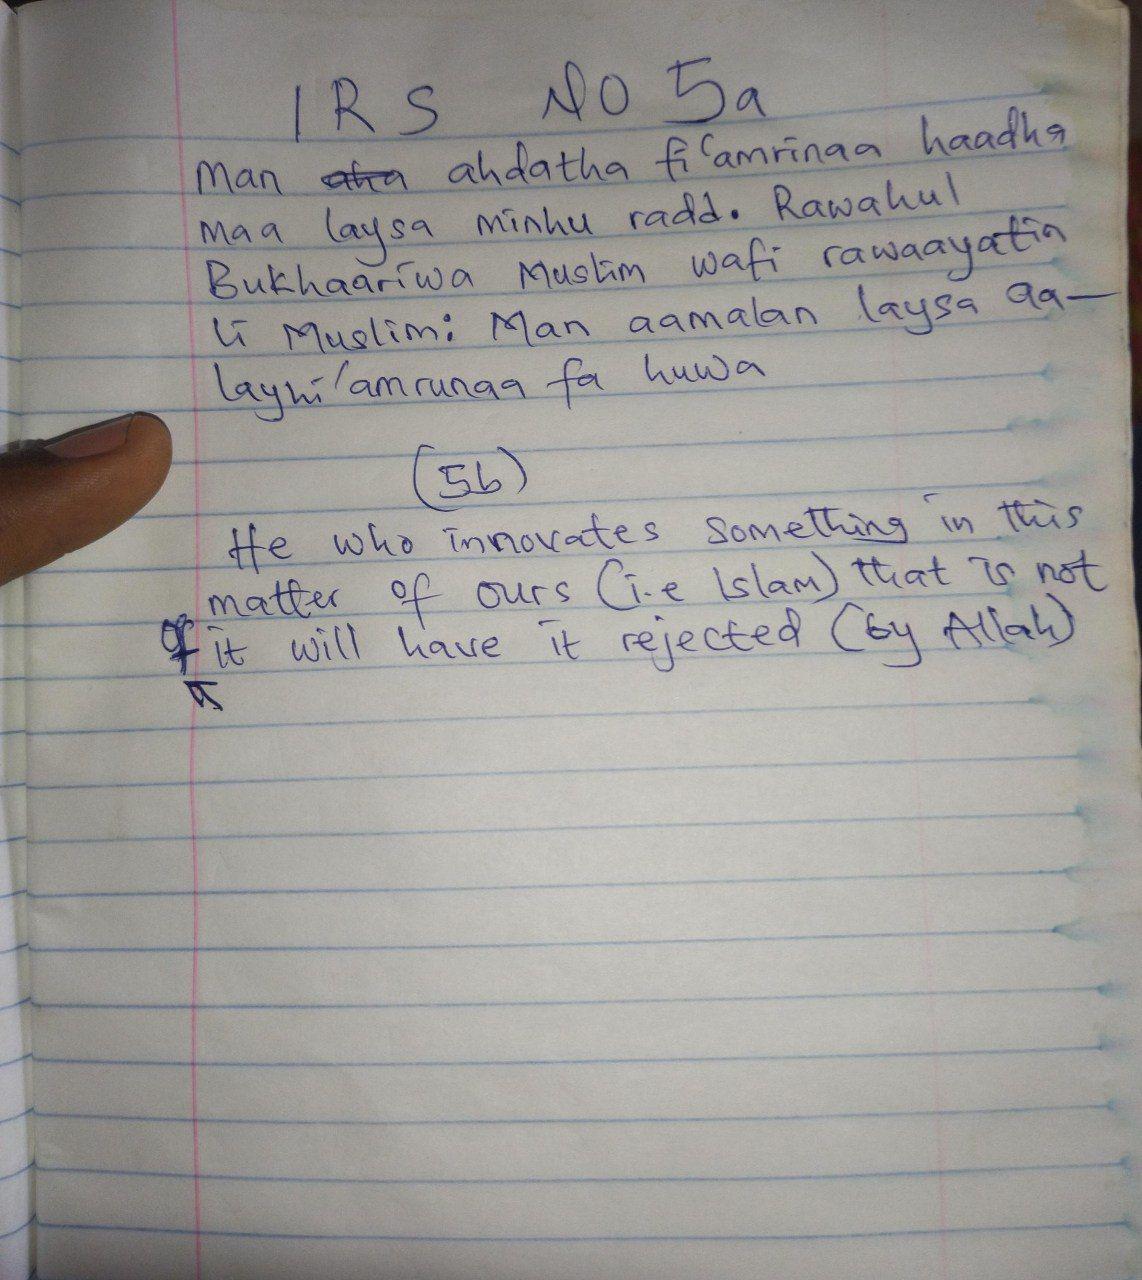 IRS NO 5a
Man ahdatha fi 'amrinaa haadha
maa laysa minhu radd. Rawahul
Bukhaariwa Muslim wafi rawaayatin
li Muslim: Man aamalan laysa aa-
layhi 'amrunaa fa huwa
(5b)
He who innovates something in this
matter of ours (i.e Islam) that is not
of it will have it rejected (by Allah)